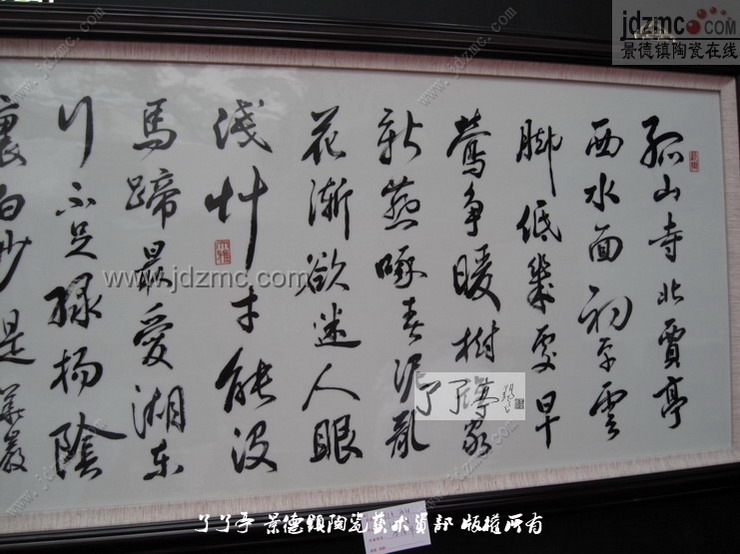 jdzmc.COM
景德镇陶瓷在线
孤山寺北賈亭
西水面初平雲
脚低幾處早
鶯争暖樹家
新燕啄春泥亂
花漸欲迷人眼
淺草才能没
馬蹄最愛湖東
行不足緑楊陰
裏白沙
www.jdzmc.com
了了亭
了了亭 景德镇陶瓷艺术资部 版权所有